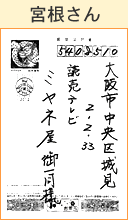 宮根さん
5408510
大阪市中央区城見
2.2.33
読売テレビ
ミヤネ屋御中様